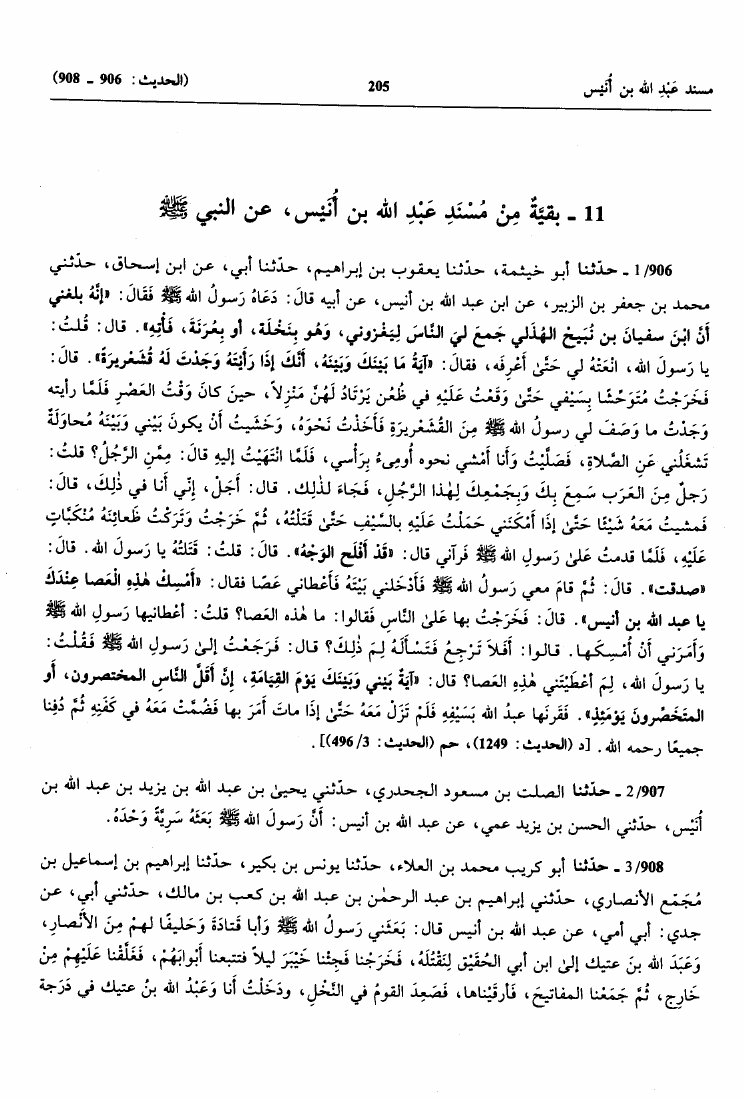 مسند عَبْدِ الله بن أُنَيْس 205 (الحديث: 906 ـ 908)
11 ـ بقيَّةٌ مِنْ مُسْنَدِ عَبْدِ الله بن أُنَيْس، عن النبي ﷺ
1/906 ـ حدّثنا أبو خيثمة، حدّثنا يعقوب بن إبراهيم، حدّثنا أبي، عن ابن إسحاق، حدّثني
محمد بن جعفر بن الزبير، عن ابن عبد الله بن أنيس، عن أبيه قالَ: دَعَاهُ رَسولُ الله ﷺ فَقَالَ: «إنَّهُ بلغني
أنَّ ابْنَ سفيان بن نُبَيْحٍ الهُذَلي جمعَ ليَ النَّاسَ لِيَغْزوني، وَهُو بِنَخْلَة، أو بِعُرَنَةَ، فَأْتِهِ». قال: قُلتُ:
يا رَسولَ الله، انْعَتْهُ لي حَتَّىٰ أَعْرِفَه، فقالَ: «آيَةُ مَا بَيْنَكَ وَبَيْنَهُ، أنَّكَ إذَا رَأَيْتَهُ وَجَدْتَ لَهُ قُشَعْرِيرَةً». قالَ:
فَخَرَجْتُ مُتَوَحِّشًا بِسَيْفي حَتَّىٰ وَقَعْتُ عَلَيْهِ في ظُعُن يَرْتَادُ لَهُنَّ مَنْزِلاً، حينَ كانَ وَقْتُ العَصْرِ فَلَمَّا رأيته
وَجَدْتُ ما وَصَفَ لي رسولُ الله ﷺ مِنَ القُشَعْرِيرَةِ فَأَخَذْتُ نَحْوَهُ، وَخَشِيتُ أنْ يكونَ بَيْني وَبَيْنَهُ مُحاوَلَةٌ
تَشْغَلُني عَنِ الصَّلاةِ، فَصَلَّيْتُ وَأنا أمْشي نحوه أُومِىءُ بِرَأسي، فَلَمَّا انْتَهَيْتُ إليهِ قالَ: مِمَّنِ الرَّجُلُ؟ قلتُ:
رَجلٌ مِنَ العَرَب سَمِعَ بِكَ وَبِجَمْعِكَ لِهٰذا الرَّجلِ، فَجَاءَ لذٰلِكَ. قال: أجَلْ، إنّي أنا في ذٰلِكَ، قالَ:
فمشيتُ مَعَهُ شَيْئًا حَتَّىٰ إذَا أمْكَنَني حَمَلْتُ عَلَيْهِ بالسَّيْفِ حَتَّىٰ قَتَلْتُهُ، ثُمَّ خَرَجْتُ وَتَرَكْتُ ظَعائِنَهُ مُنْكَبَّاتٍ
عَلَيْهِ، فَلَمَّا قدمتُ علىٰ رَسولِ الله ﷺ فَرآني قال: «قَدْ أفْلَحَ الوَجْهُ». قالَ: قلتُ: قَتَلْتُهُ يا رَسولَ الله. قالَ:
«صدقتَ». قالَ: ثُمَّ قامَ معي رَسولُ الله ﷺ فَأَدْخَلَني بَيْتَهُ فَأَعْطاني عَصًا فقال: «أَمْسِكْ هٰذِهِ العَصا عِنْدَكَ
يا عبد الله بن أنيس». قالَ: فَخَرَجْتُ بها عَلىٰ النَّاسِ فقالوا: ما هٰذه العصا؟ قلتُ: أعْطانيها رَسولُ الله ﷺ
وَأمَرَني أنْ أُمْسِكَها. قالوا: أفَلاَ تَرْجِعُ فَتَسْأَلَهُ لِمَ ذٰلِكَ؟ قالَ: فَرَجَعْتُ إلىٰ رَسولِ الله ﷺ فَقُلْتُ:
يا رَسولَ الله، لِمَ أعْطَيْتَني هٰذِهِ العَصا؟ قالَ: «آيَةٌ بَيْني وَبَيْنَكَ يَوْمَ القِيامَةِ، إنَّ أقَلَّ النَّاسِ المختصرون، أو
المتَخَصِّرونَ يَوْمَئِذٍ». فَقَرَنها عبدُ الله بَسَيْفِهِ فَلَمْ تَزَلْ مَعَهُ حَتَّىٰ إذَا ماتَ أمَرَ بها فَضُمَّتْ مَعَهُ في كَفَنِهِ ثُمَّ دُفِنا
جميعًا رحمه الله. [د (الحديث: 1249)، حم (الحديث: 3/ 496)].
2/907 ـ حدّثنا الصلت بن مسعود الجحدري، حدّثني يحيىٰ بن عبد الله بن يزيد بن عبد الله بن
أُنَيْس، حدّثني الحسن بن يزيد عمي، عن عبد الله بن أنيس: أنَّ رَسولَ الله ﷺ بَعَثَهُ سَرِيَّةً وَحْدَهُ.
3/908 ـ حدّثنا أبو كريب محمد بن العلاء، حدّثنا يونس بن بكير، حدّثنا إبراهيم بن إسماعيل بن
مُجَمّع الأنصاري، حدّثني إبراهيم بن عبد الرحمٰن بن عبد الله بن كعب بن مالك، حدّثني أبي، عن
جدي: أبي أمي، عن عبد الله بن أنيس قال: بَعَثَني رَسولُ الله ﷺ وَأبا قتادَةَ وَحَليفًا لهمْ مِنَ الأنْصارِ،
وَعَبَدَ الله بنَ عتيك إلىٰ ابن أبي الحُقَيْقِ لِنَقْتُلَهُ، فَخَرَجْنا فَجِئْنا خَيْبَرَ ليلاً فتتبعنا أبْوابَهُمْ، فَغَلَّقْنا عَلَيْهِمْ مِنْ
خارِجٍ، ثُمَّ جَمَعْنا المفاتيحَ، فَأرقَيْناها، فَصَعِدَ القومُ في النَّخْلِ، ودَخَلْتُ أنا وَعَبْدُ الله بنُ عتيك في دَرَجة